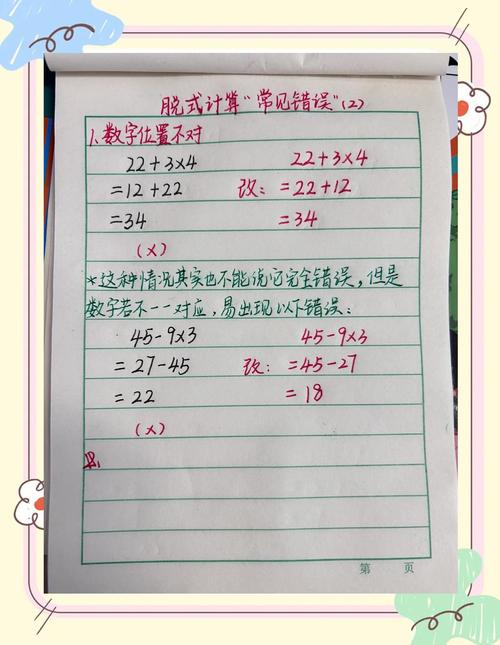 脱式计算“常见错误”(2)
1、数字位置不对
22+3×4 22+3×4
=12+22 改: =22+12
=34 =34
(×)
*这种情况其实也不能说它完全错误,但是
数字若不一一对应,易出现以下错误:
45-9×3 45-9×3
=27-45 改: =45-27
=22 =18
(×)
第 页